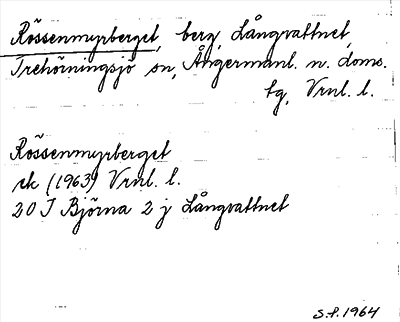 Rössenmyrberget, berg, Långvattnet,
Trehörningsjö sn, Ångermanl. n. doms.
tg, Vrnl. l.
Rössenmyrberget
ek (1963) Vrnl. l.
20 I Björna 2 j Långvattnet
S.f. 1964